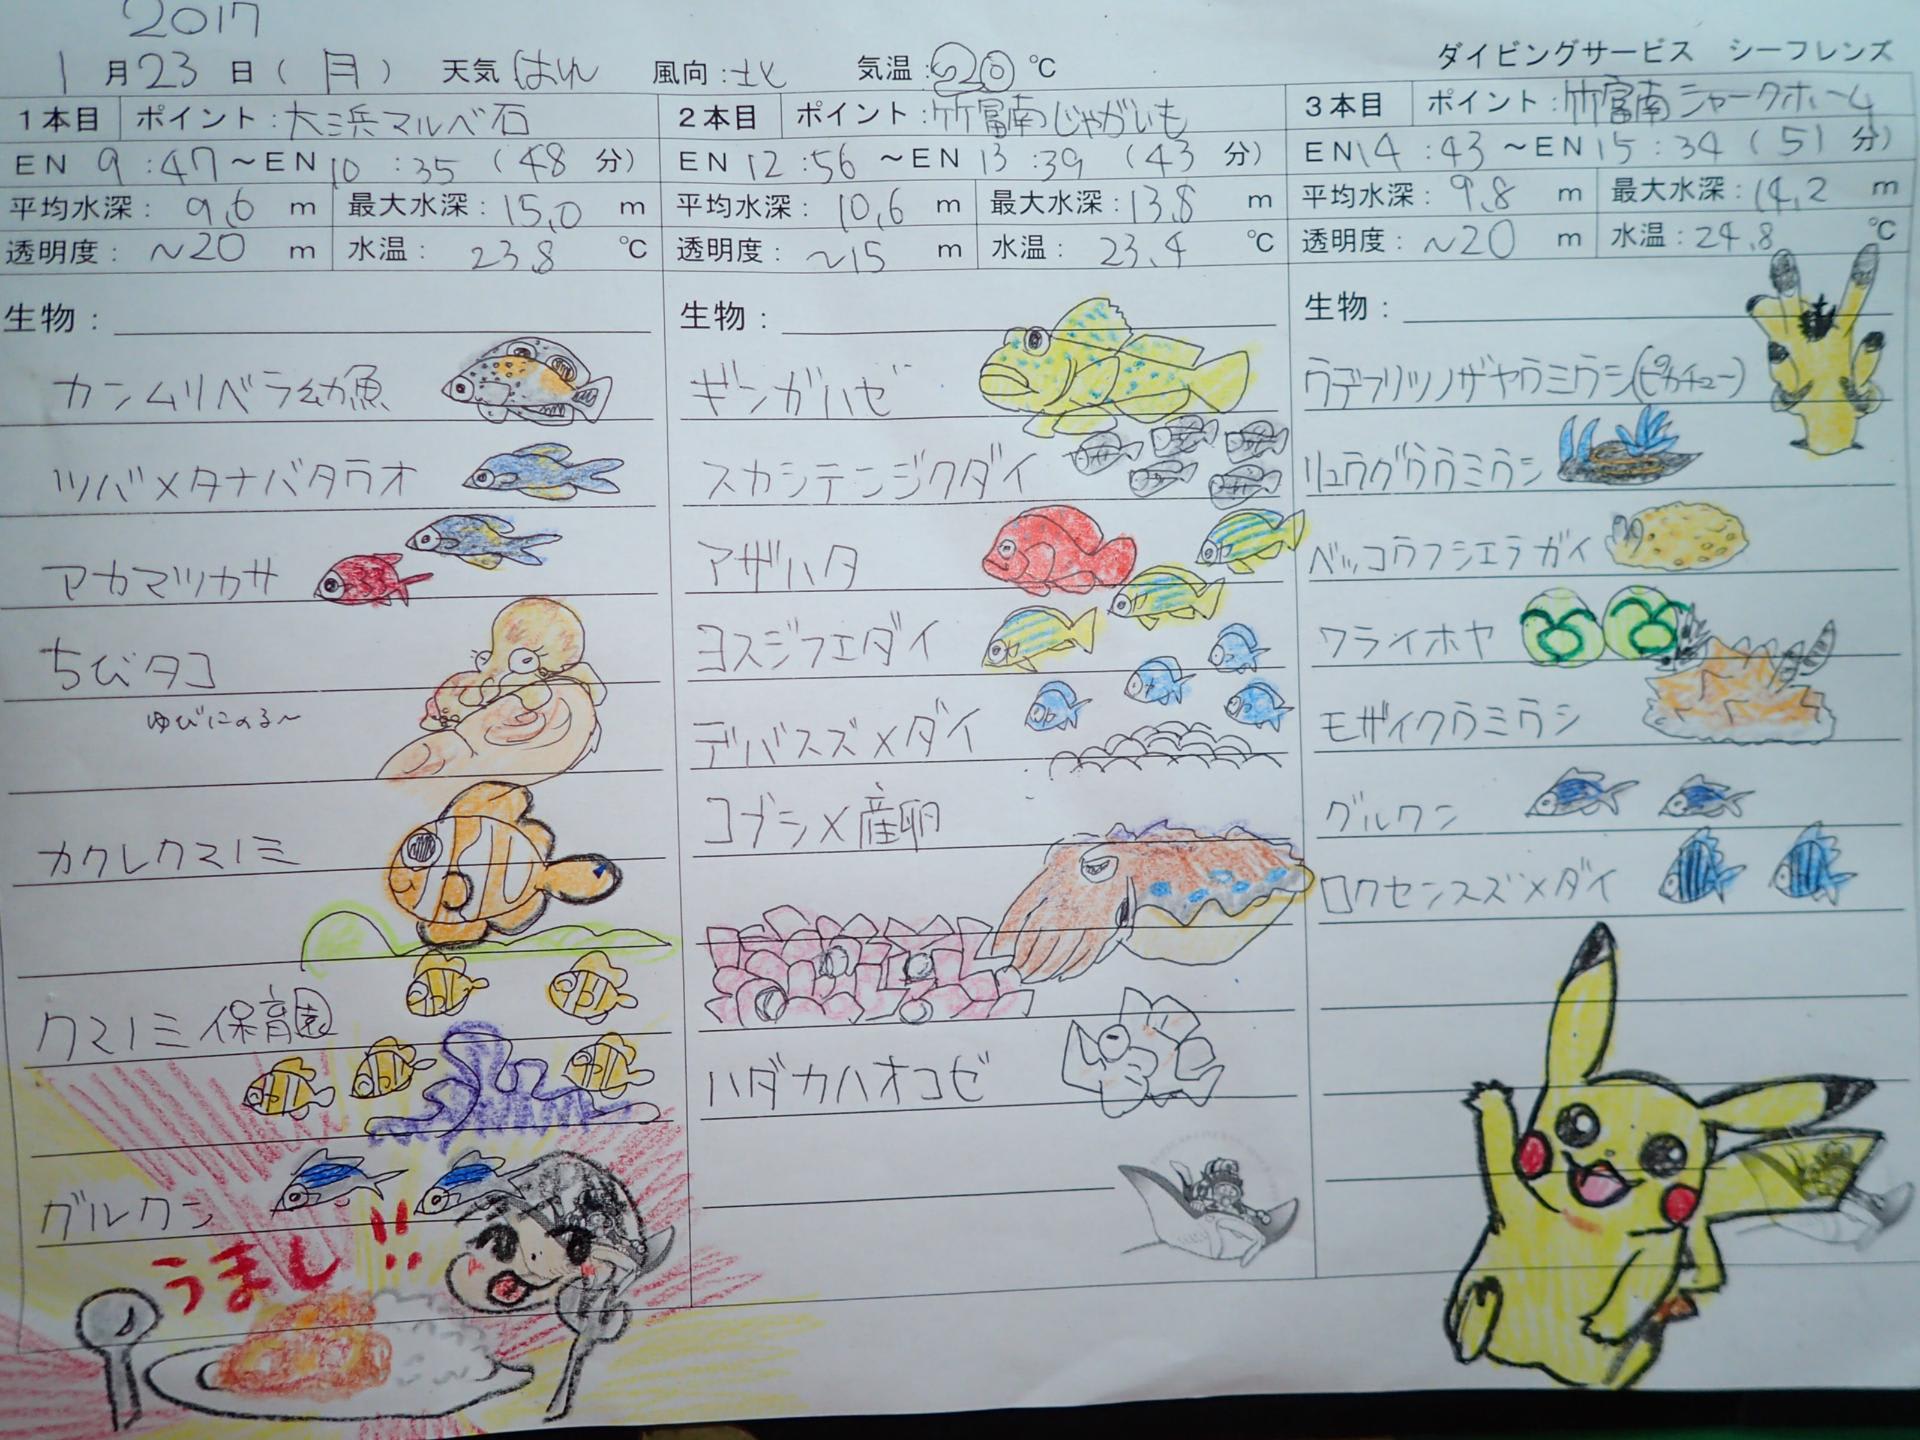 2017
1月23日(月) 天気 はれ 風向:北 気温:20℃
ダイビングサービス シーフレンズ
1本目 ポイント:大浜マルベ石
EN 9:47~EN 10:35 (48分)
平均水深: 9.6 m 最大水深: 15.0 m
透明度: ~20 m 水温: 23.8 ℃
生物:
カンムリベラ幼魚
ツバメタナバタウオ
アカマツカサ
ちびタコ
ゆびにのる~
カクレクマノミ
クマノミ保育園
グルクン
うまし!!
2本目 ポイント:竹富南じゃがいも
EN 12:56 ~EN 13:39 (43分)
平均水深: 10.6 m 最大水深: 13.8 m
透明度: ~15 m 水温: 23.4 ℃
生物:
ギンガハゼ
スカシテンジクダイ
アザハタ
ヨスジフエダイ
デバスズメダイ
コブシメ産卵
ハダカハオコゼ
3本目 ポイント:竹富南シャークホーム
EN 14:43 ~EN 15:34 (51分)
平均水深: 9.8 m 最大水深: 14.2 m
透明度: ~20 m 水温: 24.8 ℃
生物:
ウデフリツノザヤウミウシ(ピカチュー)
リュウグウウミウシ
ベッコウフシエラガイ
ワライボヤ
モザイクウミウシ
グルクン
ロクセンスズメダイ